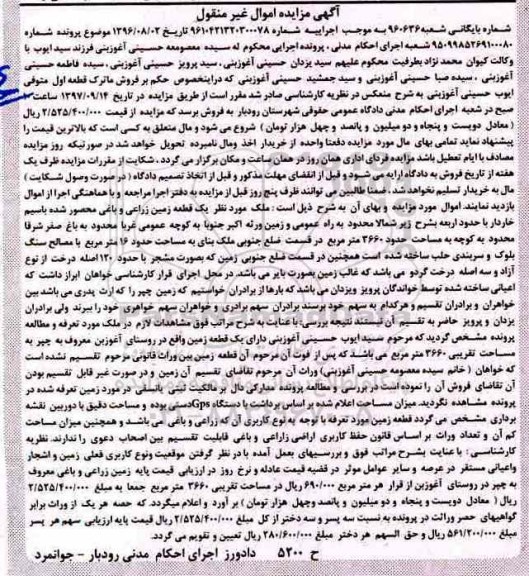 آگهی مزایده اموال غیر منقول
شماره بایگانی شعبه ۹۶۰۶۳۶ به موجب اجراییه شماره ۹۶۱۰۴۲۱۳۲۰۳۰۰۰۷۸ تاریخ ۱۳۹۶/۰۸/۰۲ موضوع پرونده شماره
۹۵۰۹۹۸۵۲۶۹۱۰۰۰۸۰ شعبه اجرای احکام مدنی ، پرونده اجرایی محکوم له سیده معصومه حسینی آغوزبنی فرزند سید ایوب با
وکالت کیوان محمد نژاد بطرفیت محکوم علیهم سید یزدان حسینی آغوزبنی ، سید پرویز حسینی آغوزبنی ، سیده فاطمه حسینی
آغوزبنی ، سیده صبا حسینی آغوزبنی و سید جمشید حسینی آغوزبنی که دراینخصوص حکم بر فروش ماترک قطعه اول متوفی
ایوب حسینی آغوزبنی به شرح منعکس در نظریه کارشناسی صادر شد مقرر است از طریق مزایده در تاریخ ۱۳۹۷/۰۹/۱۴ ساعت
صبح در شعبه اجرای احکام مدنی دادگاه عمومی حقوقی شهرستان رودبار به فروش برسد که مزایده از قیمت ۲/۵۲۵/۴۰۰/۰۰۰ ریال
( معادل دویست و پنجاه و دو میلیون و پانصد و چهل هزار تومان ) شروع می شود و مال متعلق به کسی است که بالاترین قیمت را
پیشنهاد نماید تمامی بهای مال مورد مزایده دفعتا واحده از خریدار اخذ ومال نامبرده تحویل خواهد شد در صورتیکه روز مزایده
مصادف با ایام تعطیل باشد مزایده فردای اداری همان روز در همان ساعت و مکان برگزار می گردد ، شکایت از مقررات مزایده ظرف یک
هفته از تاریخ فروش به دادگاه ارایه می شود و قبل از انقضای مهلت مذکور و قبل از اتخاذ تصمیم دادگاه ( در صورت وصول شکایت )
مال به خریدار تسلیم نخواهد شد ، ضمنا طالبین می توانند ظرف پنج روز قبل از مزایده به دفتر اجرا مراجعه و با هماهنگی اجرا از اموال
بازدید نمایند. اموال مورد مزایده و بهای آن به شرح ذیل است : ملک مورد نظر یک قطعه زمین زراعی و باغی محصور شده باسیم
خاردار با حدود اربعه بشرح زیر شمالا محدود به راه عمومی و زمین ورثه اکبر جنوبا به کوچه عمومی غربا محدود به باغ صفر شرقا
محدود به کوچه به مساحت حدود ۳۶۶۰ متر مربع در قسمت ضلع جنوبی ملک بنای به مساحت حدود ۱۶ متر مربع با مصالح سنگ
بلوک و سربندی حلب ساخته شده است همچنین در قسمت ضلع جنوبی زمین که بصورت مشجر با حدود ۱۲۰ اصله درخت از نوع
آزاد و سه اصله درخت گردو می باشد که غالب زمین بصورت بایر می باشد. در محل اجرای قرار کارشناسی خواهان ابراز داشت که
اعیانی ساخته شده توسط خواندگان پرویز ویزدان می باشد که بارها از برادران خواستیم که زمین چپر را که ارث پدری می باشد بین
خواهران و برادران تقسیم و هرکدام به سهم خود برسند برادران سهم برادری و خواهران سهم خواهری خود را ببرند ولی برادران
یزدان و پرویز حاضر به تقسیم آن نیستند نتیجه بررسی: با عنایت به شرح مراتب فوق مشاهدات لازم در ملک مورد تعرفه و مطالعه
پرونده مشخص گردید که مرحوم سید ایوب حسینی آغوزبنی دارای یک قطعه زمین واقع در روستای آغوزبن معروف به چپر به
مساحت تقریبی ۳۶۶۰ متر مربع می باشد که پس از فوت آن مرحوم آن قطعه زمین بین وراث قانونی مرحوم تقسیم نشده است
که خواهان ( خانم سیده معصومه حسینی آغوزبنی) وراث آن مرحوم تقاضای تقسیم آن زمین و در صورت غیر قابل تقسیم بودن
آن تقاضای فروش آن را نموده است در بررسی و مطالعه پرونده مدارکی دال بر مالکیت ثبتی یانسقی در مورد زمین تعرفه شده در
پرونده مشاهده نگردید. میزان مساحت اعلام شده بر اساس برداشت با دستگاه Gps دستی بوده و مساحت دقیق با دوربین نقشه
برداری مشخص می گردد قطعه زمین مورد تعرفه با توجه به نوع کاربری آن که زراعی و باغی می باشد و همچنین میزان مساحت
کم آن و تعداد وراث بر اساس قانون حفظ کاربری اراضی زراعی و باغی قابلیت تقسیم بین اصحاب دعوی را ندارند. نظریه
کارشناسی : با عنایت بشرح مراتب فوق و بررسیهای بعمل آمده با در نظر گرفتن موقعیت ونوع کاربری فعلی زمین و اشجار
واعیانی مستقر در عرصه و سایر عوامل موثر در قضیه قیمت عادله و نرخ روز در ارزیابی قیمت پایه زمین زراعی و باغی معروف
به چپر در روستای آغوزبن از قرار هر متر مربع ۶۹۰/۰۰۰ ریال در مساحت تقریبی ۳۶۶۰ متر مربع جمعا به مبلغ ۲/۵۲۵/۴۰۰/۰۰۰
ریال ( معادل دویست و پنجاه و دو میلیون و پانصد وچهل هزار تومان ) بر آورد و اعلام میگردد. که حصه هر یک از وراث برابر
گواهیهای حصر وراثت در پرونده به نسبت سه پسر و سه دختر از کل مبلغ ۲/۵۲۵/۴۰۰/۰۰۰ ریال قیمت پایه ارزیابی سهم هر پسر
مبلغ ۵۶۱/۲۰۰/۰۰۰ ریال و حق السهم هر دختر مبلغ ۲۸۰/۶۰۰/۰۰۰ ریال تعیین و تقویم می گردد.
ح ۵۲۰۰ دادورز اجرای احکام مدنی رودبار - جوانمرد